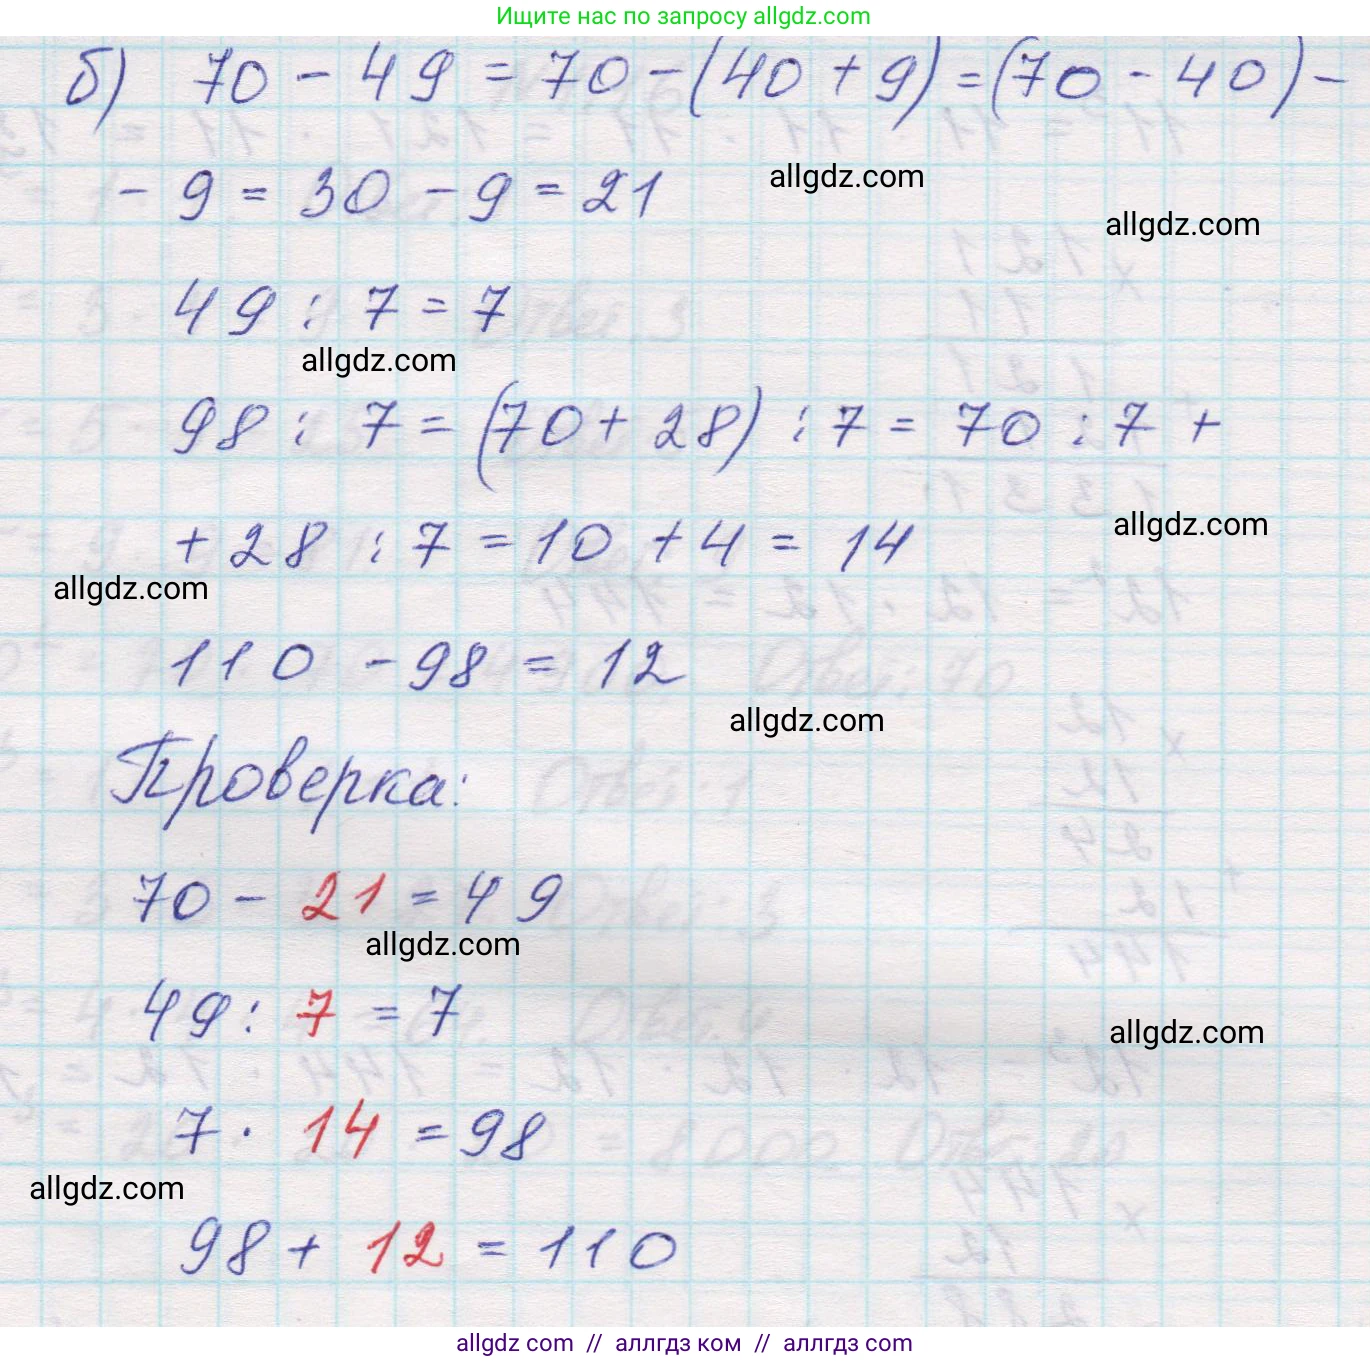 Ищите нас по запросу allgdz.com
б) 70 - 49 = 70 - (40 + 9) = (70 - 40) -
- 9 = 30 - 9 = 21
allgdz.com
allgdz.com
49 : 7 = 7
allgdz.com
98 : 7 = (70 + 28) : 7 = 70 : 7 +
+ 28 : 7 = 10 + 4 = 14
allgdz.com
allgdz.com
110 - 98 = 12
allgdz.com
Проверка:
70 - 21 = 49
allgdz.com
49 : 7 = 7
allgdz.com
7 · 14 = 98
allgdz.com
98 + 12 = 110
allgdz com // аллгдз ком // аллгдз com